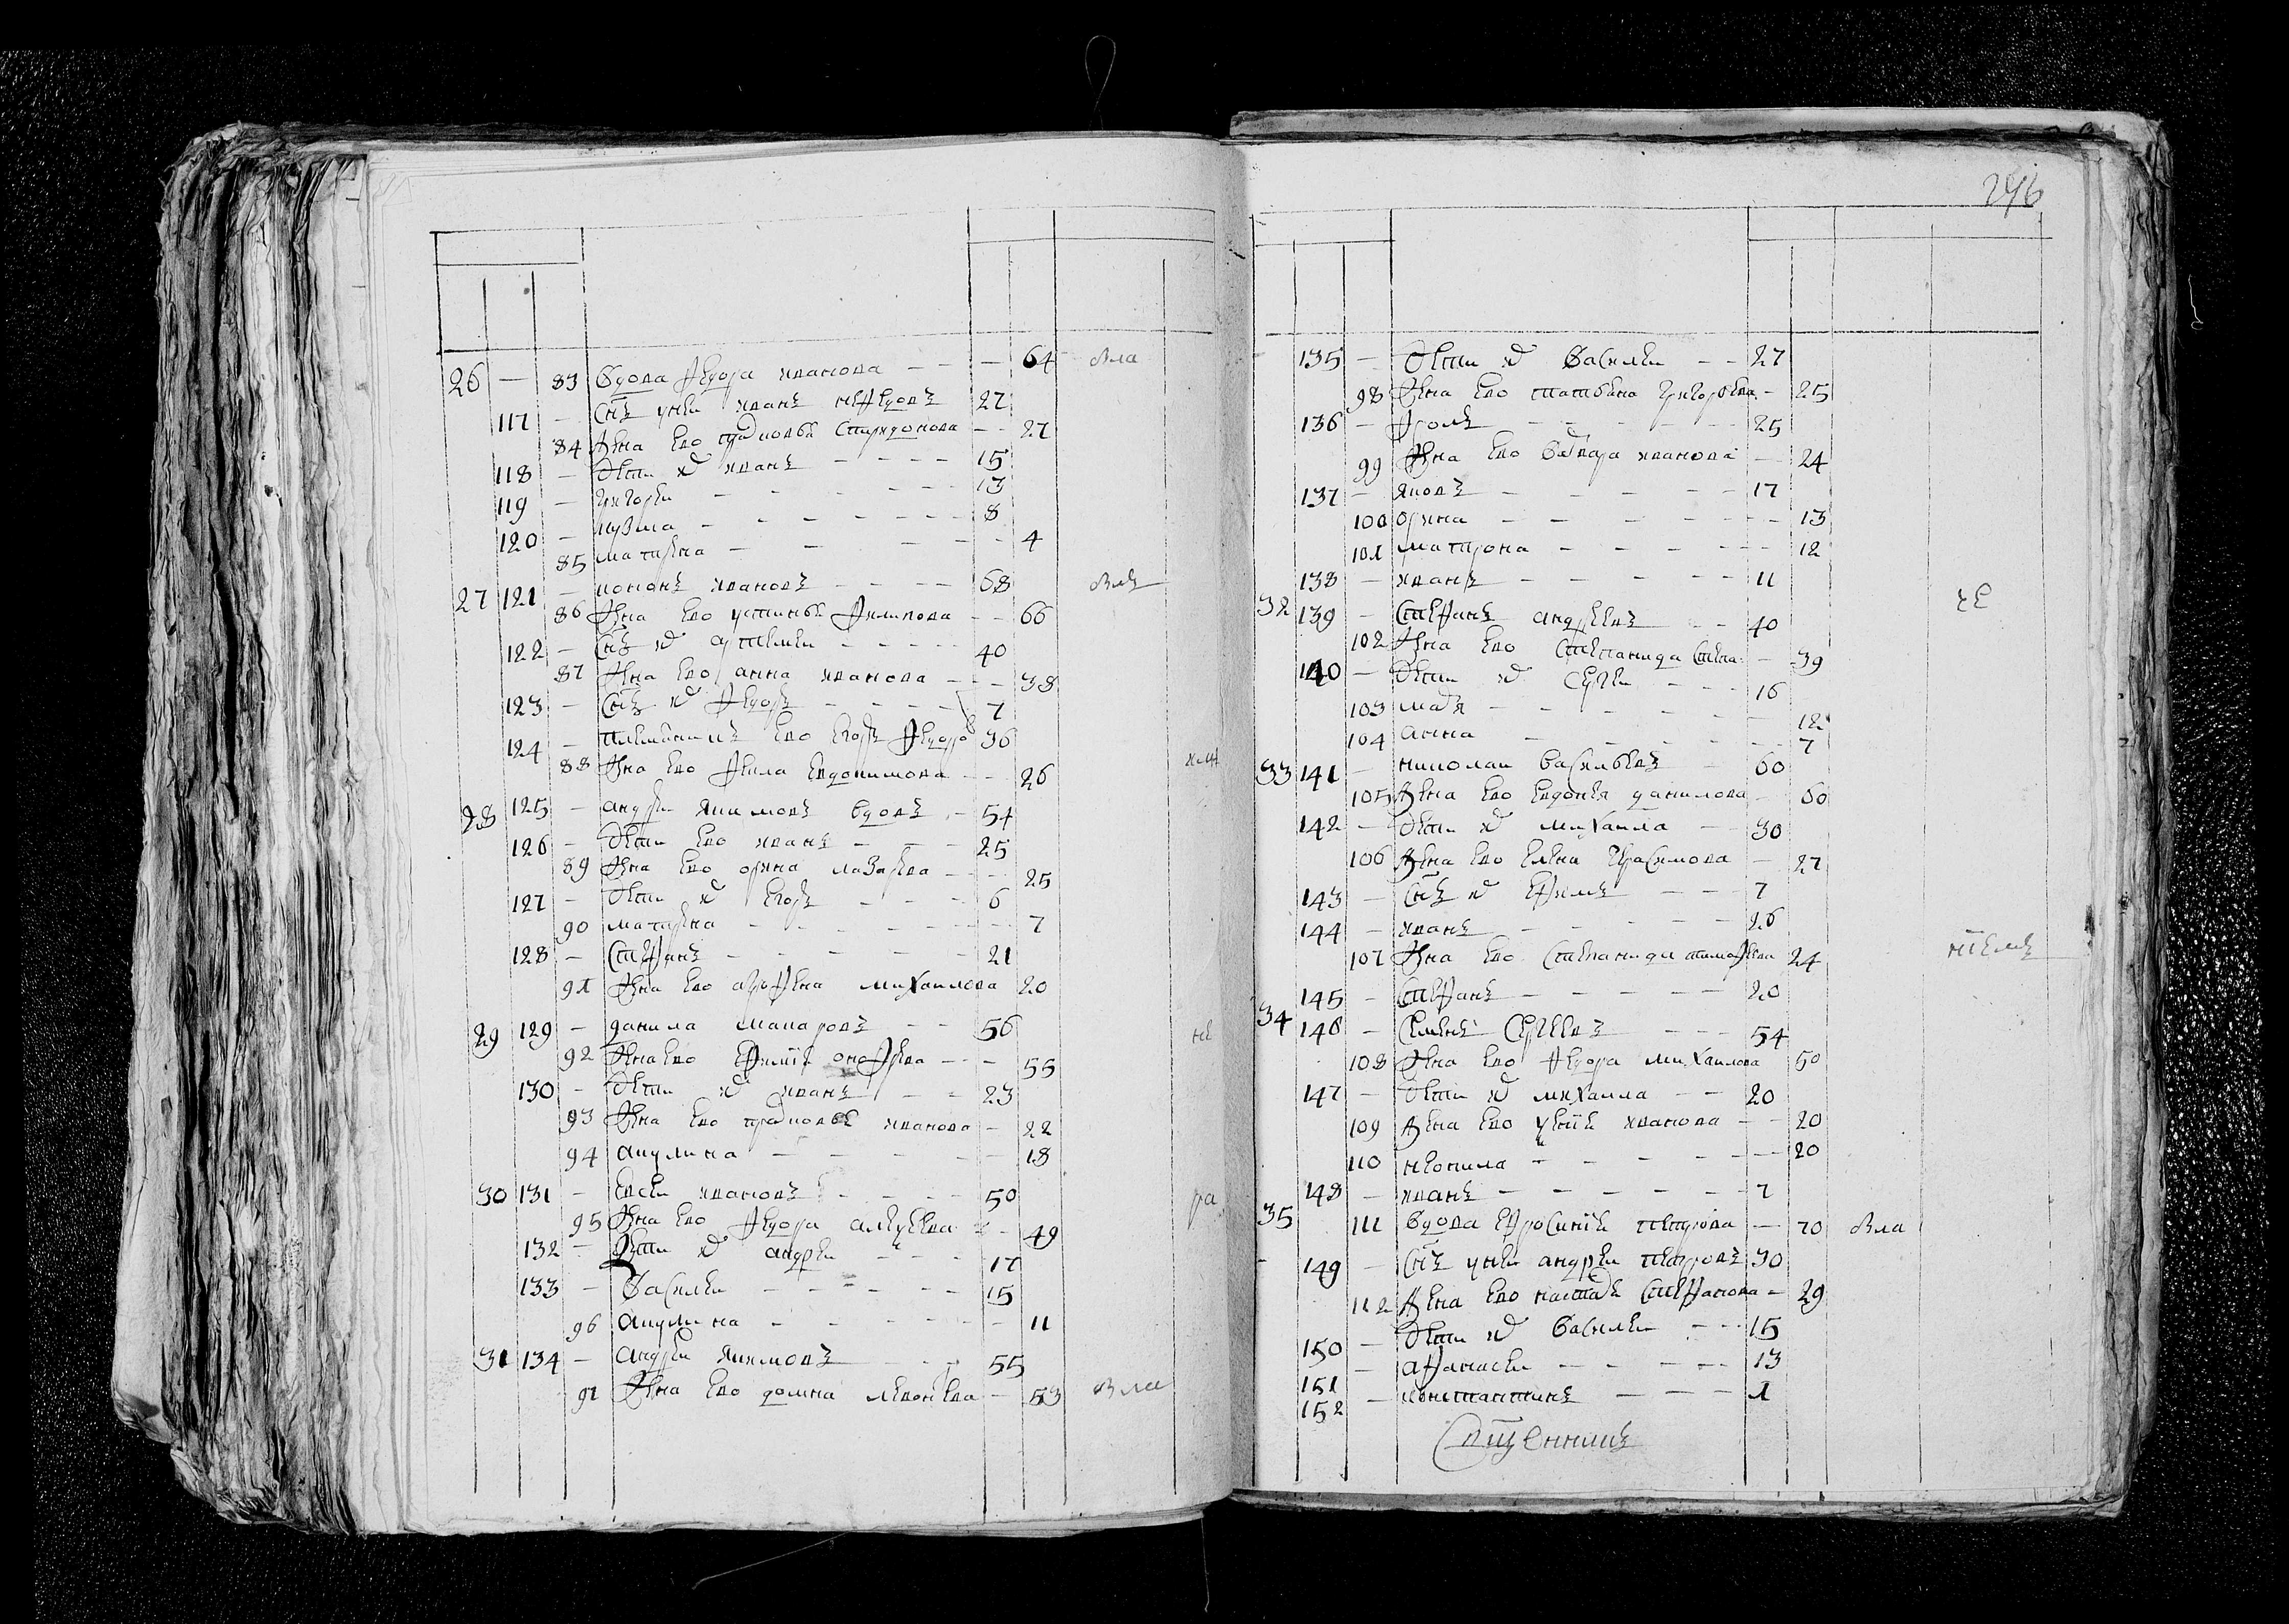 26 — 83 вдова федора иванова — — — 64 вла
117 — снъ у неи иванъ нефедовъ 27
84 жна ево прасковья спиридонова — — 27
118 — дети их иванъ — — — — 15
119 — григореи — — — — — — 13
120 — кузма — — — — — — — 8
85 матрена — — — — — 4
27 121 — кононъ ивановъ — — — — 68 влд
86 жна ево устинья филипова — — 66
122 — снъ их артемеи — — — — 40
87 жна ево анна иванова — — — 38
123 — снъ их федоръ — — — — 7
124 — племянникъ ево егоръ федоров 36
88 жна ево фекла евдокимова — — 26
28 125 — андреи якимовъ вдовъ — 54
126 — дети ево иванъ — — — 25
89 жна ево орина лазарева — — — 25
127 — дети их егоръ — — — — 6
90 матрена — — — — — — 7
128 — стефанъ — — — — — — 21
91 жна ево агрофена михаилова 20
29 129 — данила макаровъ — — 56
92 жна ево ефимия онофрева — — — 55
130 — дети их иванъ — — 23
93 жна ево прасковья иванова — 22
94 акулина — — — — — — 18
30 131 — евсеи ивановъ — — — — 50
95 жна ево федора алексеева — — 49
132 — дети их андреи — — — 17
133 — василеи — — — — — 15
96 акулина — — — — — — 11
31 134 — андреи якимовъ — — — 55
97 жна ево домна левонева — 53 вла
246
135 — дети их василеи — — 27
98 жна ево татьяна григорьева — 25
136 — фролъ — — — — — — 25
99 жна ево варвара иванова — 24
137 — яковъ — — — — — 17
100 орина — — — — — — 13
101 матрона — — — — — — 12
138 — иванъ — — — — — 11
32 139 — стефанъ андреевъ — — 40
102 жна ево степанида степа: — 39
140 — дети их сергеи — — — 16
103 марья — — — — — — 12
104 анна — — — — — — 7
33 141 — николаи васильевъ — 60
105 жена ево евдокия данилова — 60
142 — дети их михаила — — 30
106 жена ево елена герасимова — 27
143 — снъ их ефимъ — — — 7
144 — иванъ — — — — — 26
107 жна ево степанида тимофеева 24
145 — стефанъ — — — — — 20
34 146 — семенъ сергеевъ — — — 54
108 жна ево федора михаилова 50
147 — дети их михаила — — 20
109 жена ево ксения иванова — — 20
110 неонила — — — — — — 20
148 — иванъ — — — — — — 7
35 111 вдова ефросиния петрова — 70 вла
149 — снъ у неи андреи петровъ 30
112 жена ево настасья стефанова — 29
150 — дети их василеи — — — 15
151 — афанасеи — — — — — 13
152 — константинъ — — — 1
священникъ